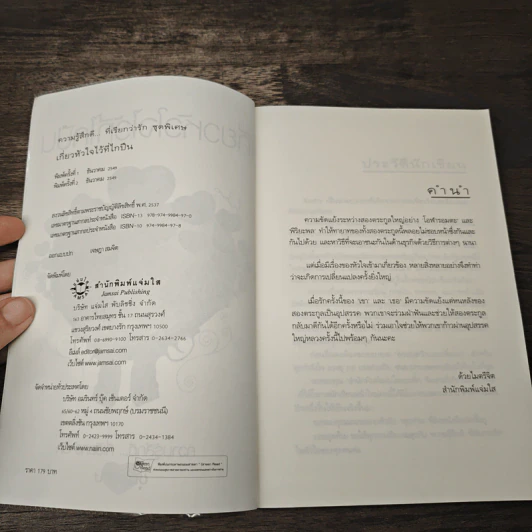 ความรู้สึกดี... ที่เรียกว่ารัก ชุดพิเศษ
เกี่ยวหัวใจไว้ที่ไกปืน
พิมพ์ครั้งที่ 1 ธันวาคม 2549
พิมพ์ครั้งที่ 2 ธันวาคม 2549
สงวนลิขสิทธิ์ตามพระราชบัญญัติลิขสิทธิ์ พ.ศ. 2537
เลขมาตรฐานสากลประจำหนังสือ ISBN-13
เลขมาตรฐานสากลประจำหนังสือ ISBN-10
ออกแบบปก
จัดพิมพ์โดย
สำนักพิมพ์แจ่มใส
Jamsai Publishing
บริษัท แจ่มใส พับลิชชิ่ง จำกัด
อาคารไทยสมุทร ชั้น 17 ถนนสุรวงศ์
แขวงสุริยวงศ์ เขตบางรัก กรุงเทพฯ 10500
โทรศัพท์ โทรสาร 0-2634-2766
อีเมล์ editor@jamsai.com
เว็บไซต์ www.jamsai.com
จัดจำหน่ายทั่วประเทศโดย
บริษัท อมรินทร์ บุ๊ค เซ็นเตอร์ จำกัด
หมู่ 4 ถนนชัยพฤกษ์ (บรมราชชนนี)
เขตตลิ่งชัน กรุงเทพฯ 10170
โทรศัพท์ 0-2423-9999 โทรสาร 0-2434-1384
เว็บไซต์ www.naiin.com
ราคา 179 บาท
คำนำ
ความขัดแย้งระหว่างสองตระกูลใหญ่อย่าง และ
ทำให้ทายาทของทั้งสองตระกูลนี้พลอยไม่ชอบหน้าซึ่งกันและ
กันไปด้วย และหาวิธีที่จะเอาชนะกันในด้านธุรกิจด้วยวิธีการต่างๆ นานา
แต่เมื่อมีเรื่องของหัวใจเข้ามาเกี่ยวข้อง หลายสิ่งหลายอย่างจึงทำท่า
ว่าจะเกิดการเปลี่ยนแปลงครั้งยิ่งใหญ่
เมื่อรักครั้งนี้ของ 'เขา' และ 'เธอ' มีความขัดแย้งแต่หนหลังของ
สองตระกูลเป็นอุปสรรค พวกเขาจะร่วมฝ่าฟันและช่วยให้สองตระกูล
กลับมาดีกันได้อีกครั้งหรือไม่ ร่วมเอาใจช่วยให้พวกเขาก้าวผ่านอุปสรรค
ใหญ่หลวงครั้งนี้ไปพร้อมๆ กันนะคะ
ด้วยไมตรีจิต
สำนักพิมพ์แจ่มใส